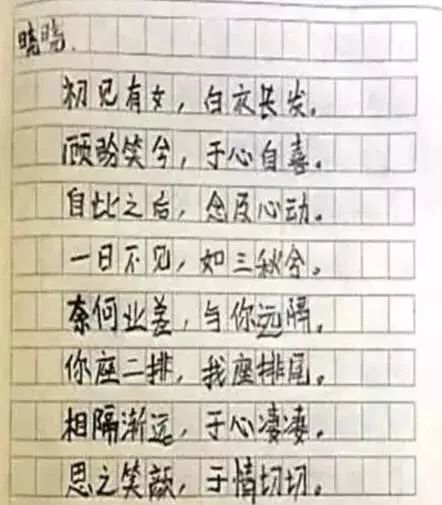 晓晓.
初见有女，白衣长发。
顾盼笑兮，于心自喜。
自比之后，念及心动。
一日不见，如三秋兮。
奈何业差，与你远隔。
你座二排，我座排尾。
相隔渐远，于心凄凄。
思之笑颜，于情切切。